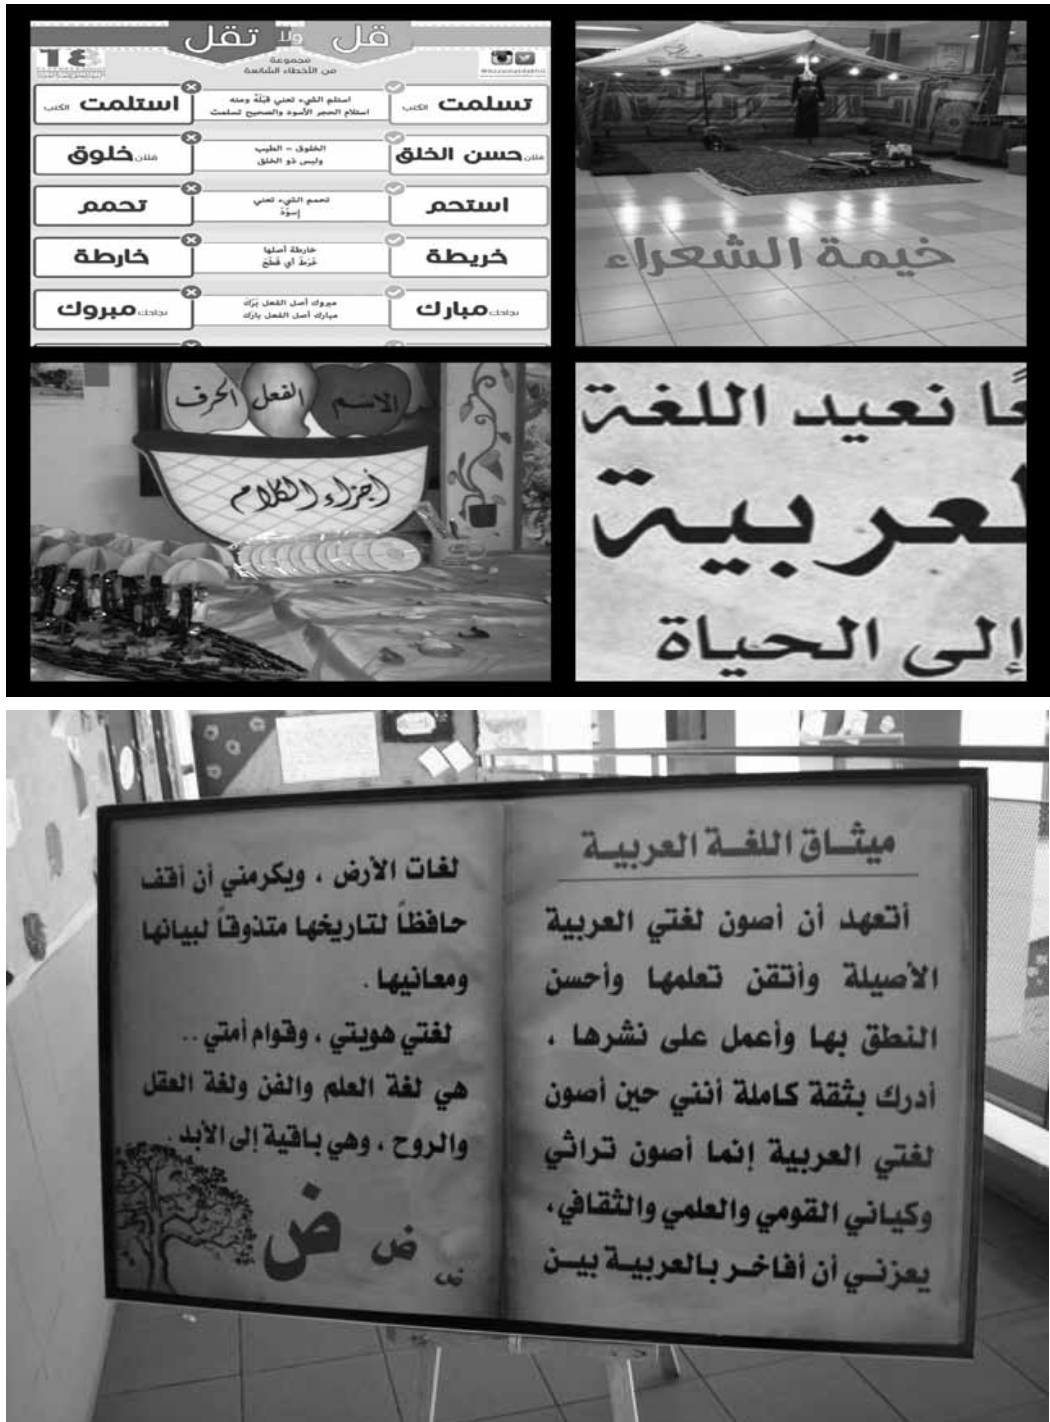 قل ولا تقل
مجموعة
من الأخطاء الشائعة
تسلمت الكتب
استلم الشيء تعني قبّله ومنه
استلام الحجر الأسود والصحيح تسلمت
استلمت الكتب
فلان حسن الخلق
الخلوق - الطيب
وليس ذو الخلق
فلان خلوق
استحم
تحمم الشيء تعني
إسود
تحمم
خريطة
خارطة أصلها
خرط أي قطع
خارطة
مبارك نجاحك
مبروك أصل الفعل برك
مبارك أصل الفعل بارك
مبروك نجاحك
خيمة الشعراء
الاسم
الفعل
الحرف
أجزاء الكلام
ـًا نعيد اللغة
لعربية
إلى الحياة
ميثـاق اللغــة العربيــة
أتعهد أن أصون لغتي العربية
الأصيلة وأتقن تعلمها وأحسن
النطق بها وأعمل على نشرها ،
أدرك بثقة كاملة أنني حين أصون
لغتي العربية إنما أصون تراثي
وكياني القومي والعلمي والثقافي،
يعزنـي أن أفاخـر بـالعربيـة بيـن
لغات الأرض ، ويكرمني أن أقف
حافظاً لتاريخها متذوقاً لبيانها
ومعانيها .
لغتي هويتي ، وقوام أمتي ..
هي لغة العلم والفن ولغة العقل
والروح ، وهي باقية إلى الأبد .
ض ض ض